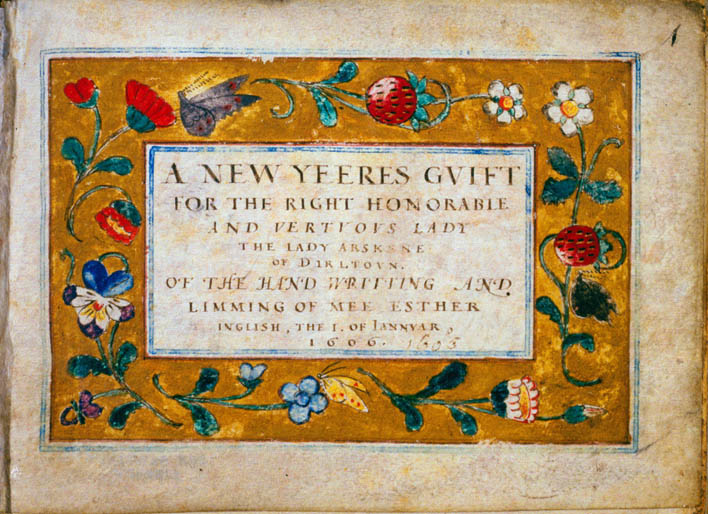 A NEW YEERES GVIFT
FOR THE RIGHT HONORABLE
AND VERTVOVS LADY
THE LADY ARSKENE
OF DIRLTOVN.
OF THE HAND WRITTING AND
LIMMING OF MEE ESTHER
INGLISH, THE I. OF IANNVAR,
1606. 1606
1